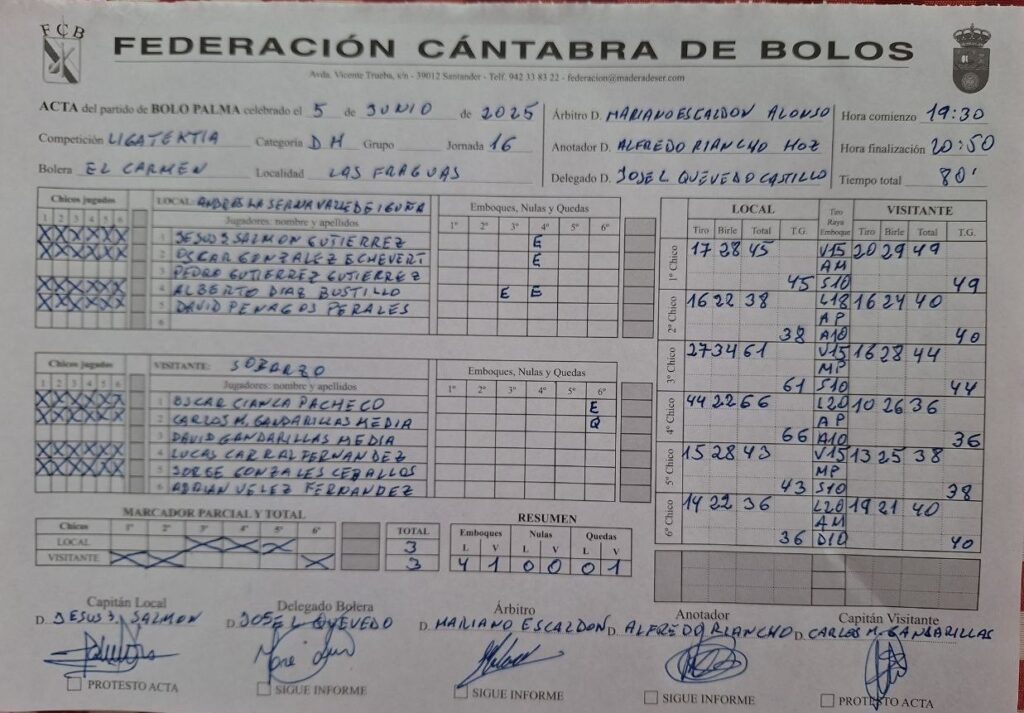 FCB
FEDERACIÓN CÁNTABRA DE BOLOS
Avda. Vicente Trueba, s/n - 39012 Santander - Telf. 942 33 83 22 - federacion@maderadeser.com
ACTA del partido de BOLO PALMA celebrado el 5 de JUNIO de 2025
Competición LIGATEKTIA Categoría DH Grupo Jornada 16
Bolera EL CARMEN Localidad LAS FRAGUAS
Árbitro D. MARIANO ESCALDON ALONSO
Anotador D. ALFREDO RIANCHO HOZ
Delegado D. JOSE L QUEVEDO CASTILLO
Hora comienzo 19:30
Hora finalización 20:50
Tiempo total 80'
Chicos jugados
1 2 3 4 5 6
LOCAL: ANDROS LA SERNA VALLE DE IGUÑA
Jugadores: nombre y apellidos
Emboques, Nulas y Quedas
1º 2º 3º 4º 5º 6º
1 JESUS J SALMON GUTIERREZ E
2 OSCAR GONZALEZ ECHEVERT E
3 PEDRO GUTIERREZ GUTIERREZ
4 ALBERTO DIAZ BUSTILLO E E
5 DAVID PENAGOS PERALES
6
Chicos jugados
1 2 3 4 5 6
VISITANTE: SOBARZO
Jugadores: nombre y apellidos
Emboques, Nulas y Quedas
1º 2º 3º 4º 5º 6º
1 OSCAR CIANCA PACHECO E
2 CARLOS M. GANDARILLAS MEDIA Q
3 DAVID GANDARILLAS MEDIA
4 LUCAS CARRAL FERNANDEZ
5 JORGE GONZALES CEBALLOS
6 ADRIAN VELEZ FERNANDEZ
LOCAL Tiro Raya Emboque VISITANTE
Tiro Birle Total T.G. Tiro Birle Total T.G.
1º Chico 17 28 45 V15 20 29 49
AM
45 S10 49
2º Chico 16 22 38 L18 16 24 40
AP
38 A10 40
3º Chico 27 34 61 V15 16 28 44
MP
61 S10 44
4º Chico 44 22 66 L20 10 26 36
AP
66 A10 36
5º Chico 15 28 43 V15 13 25 38
MP
43 S10 38
6º Chico 14 22 36 L20 19 21 40
AM
36 D10 40
MARCADOR PARCIAL Y TOTAL
Chicos 1º 2º 3º 4º 5º 6º TOTAL
LOCAL X X X 3
VISITANTE X X X 3
RESUMEN
Emboques Nulas Quedas
L V L V L V
4 1 0 0 0 1
Capitán Local
D. JESUS J. SALMON
PROTESTO ACTA
Delegado Bolera
D. JOSE L QUEVEDO
SIGUE INFORME
Árbitro
D. MARIANO ESCALDON
SIGUE INFORME
Anotador
D. ALFREDO RIANCHO
SIGUE INFORME
Capitán Visitante
D. CARLOS M. GANDARILLAS
PROTESTO ACTA